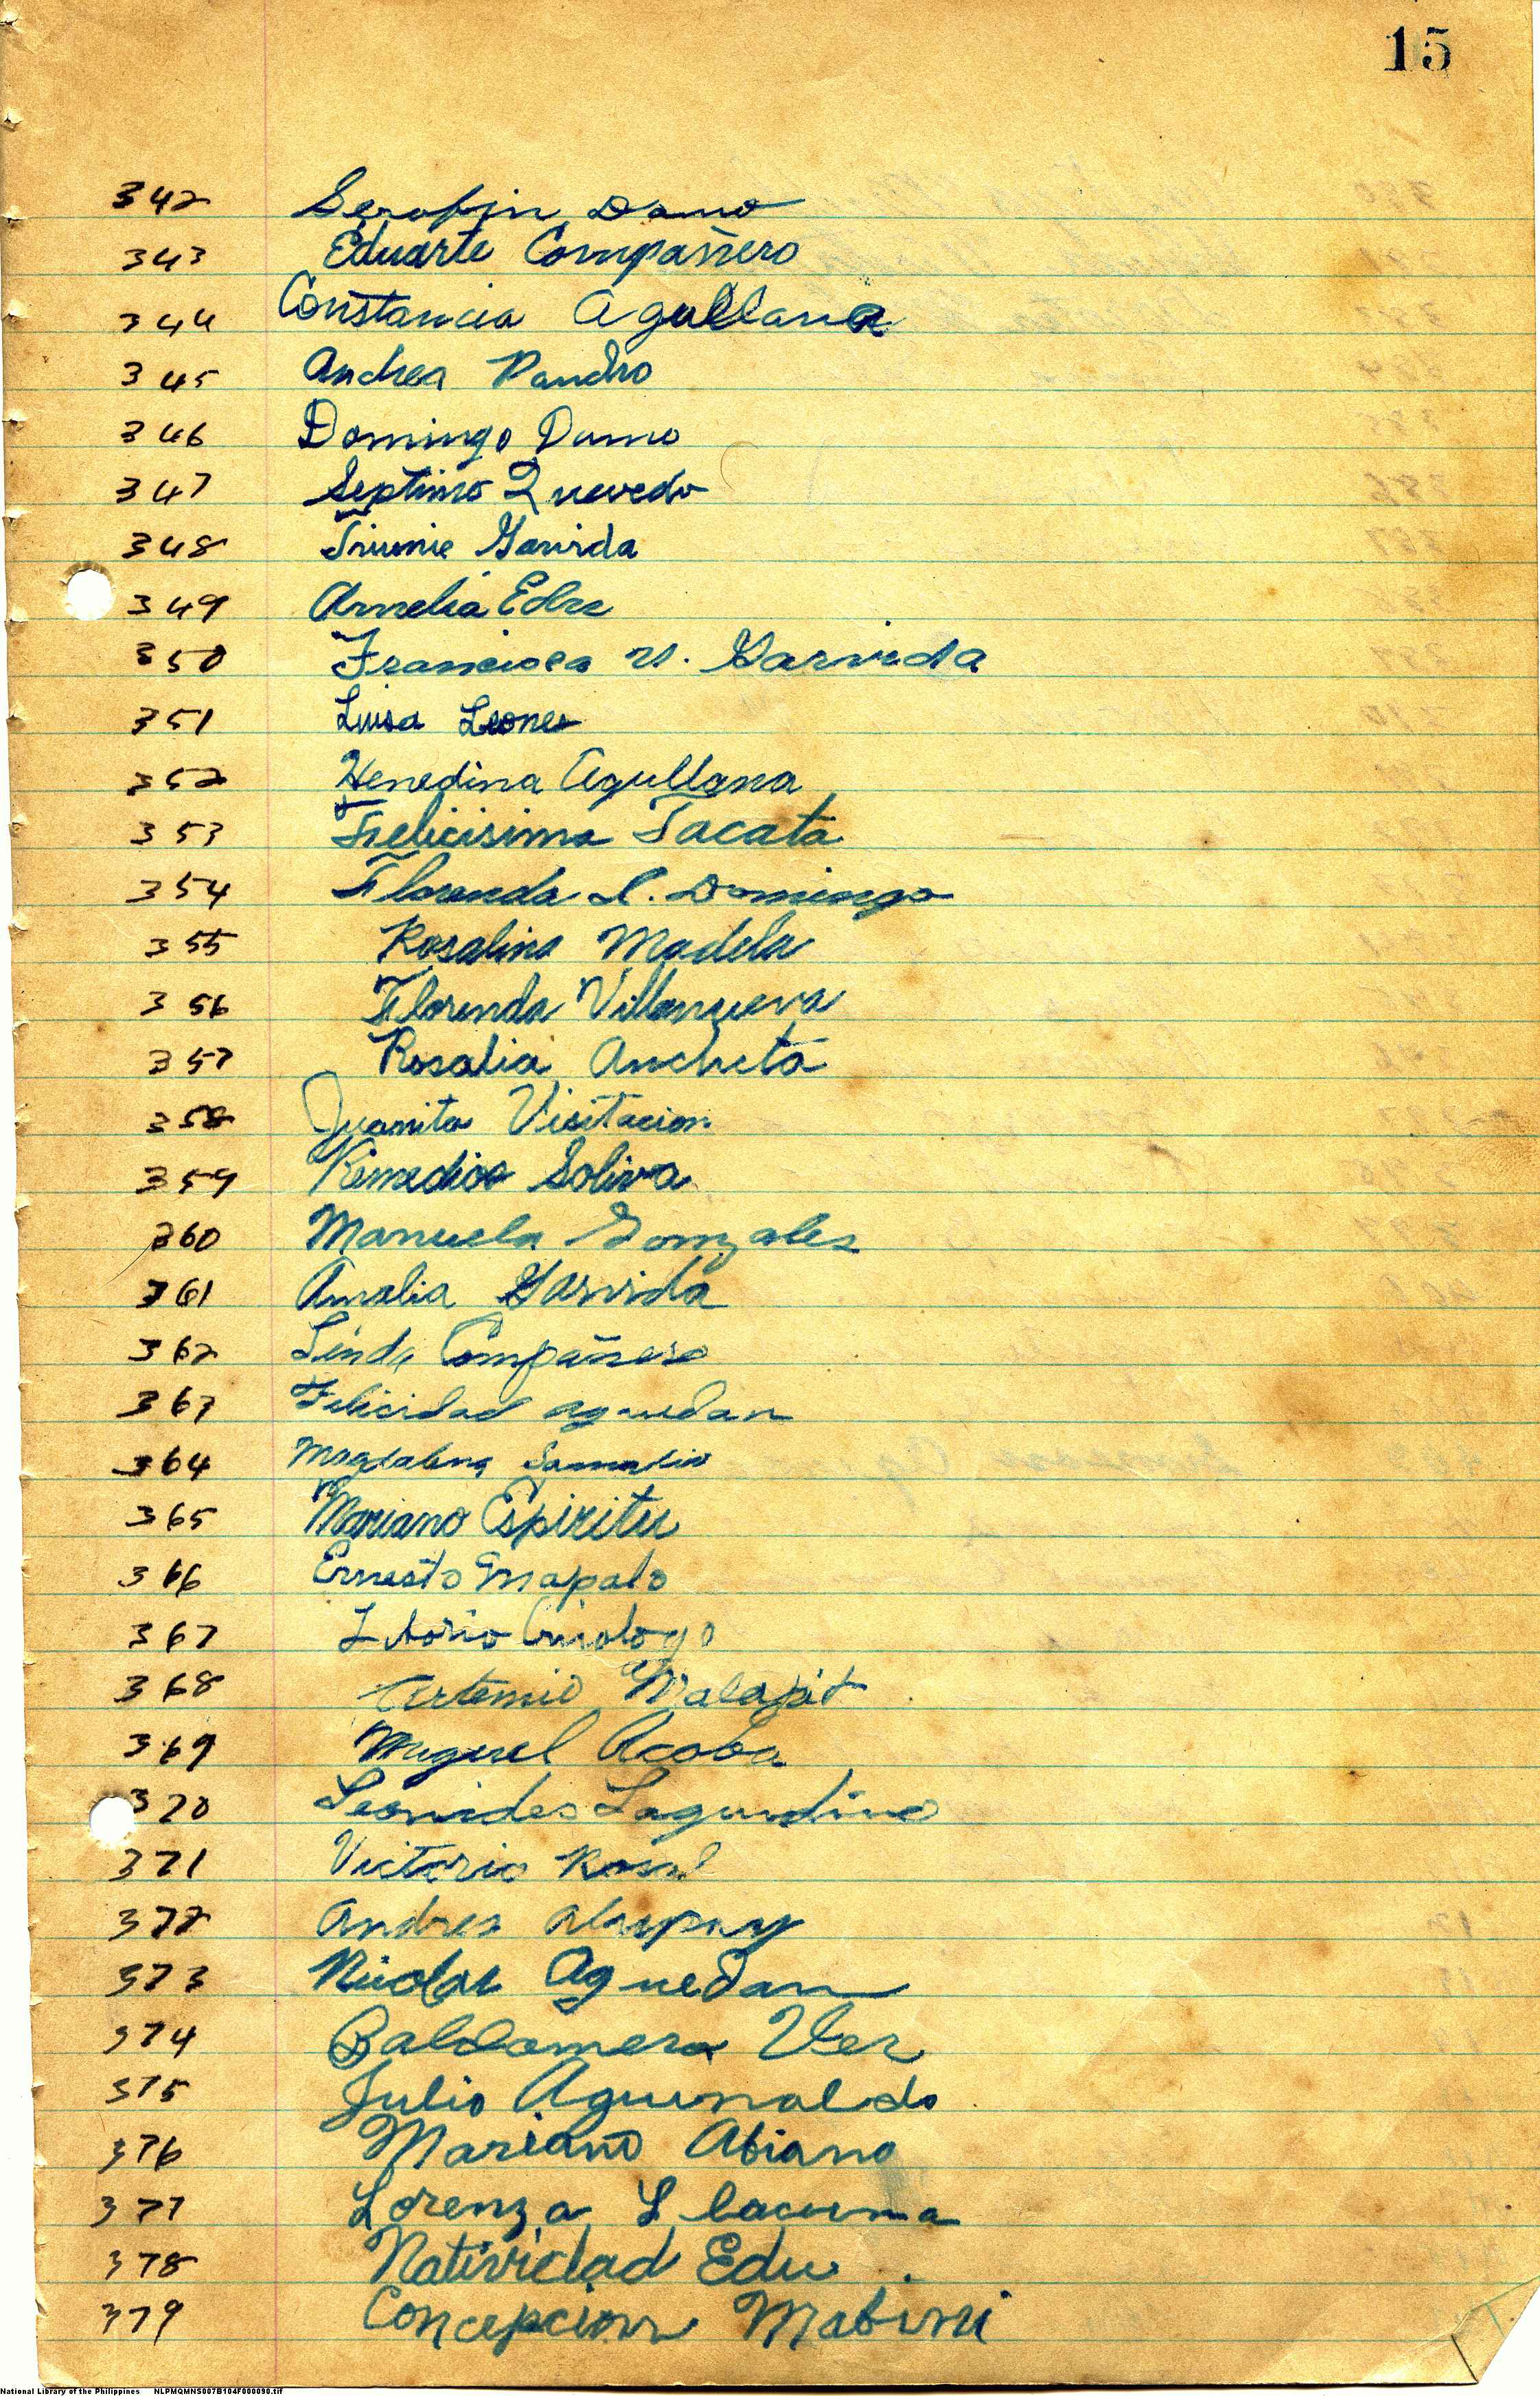 15
342 Serafin Damo
343 Eduarte Compañero
344 Constancia Agullana
345 Andrea Pandro
346 Domingo Damo
347 Septimo Quevedo
348 Triunie Garvida
349 Amelia Edra
350 Francisca V. Garvida
351 Luisa Leones
352 Henedina Agullana
353 Felicisima Tacata
354 Florenda L. Domingo
355 Rosalina Madela
356 Florenda Villanueva
357 Rosalia Ancheta
358 Juanita Visitacion
359 Remedios Soliva
360 Manuela Gonzales
361 Amalia Garvida
362 Linda Compañero
363 Felicidad Aguedan
364 Magdalena
365 Mariano Espiritu
366 Ernesto Mapalo
367 Crisologo
368 Artemio Malapit
369 Miguel Acoba
370 Leonides Lagundino
371 Victorio Rosal
372 Andres Alupay
373 Nicolas Aguedan
374 Baldomera Ver
375 Julio Aguinaldo
376 Mariano Abiano
377 Lorenza Llacuna
378 Natividad Edu
379 Concepcion Mabini
National Library of the Philippines NLPMQMNS007B104F000090.tif